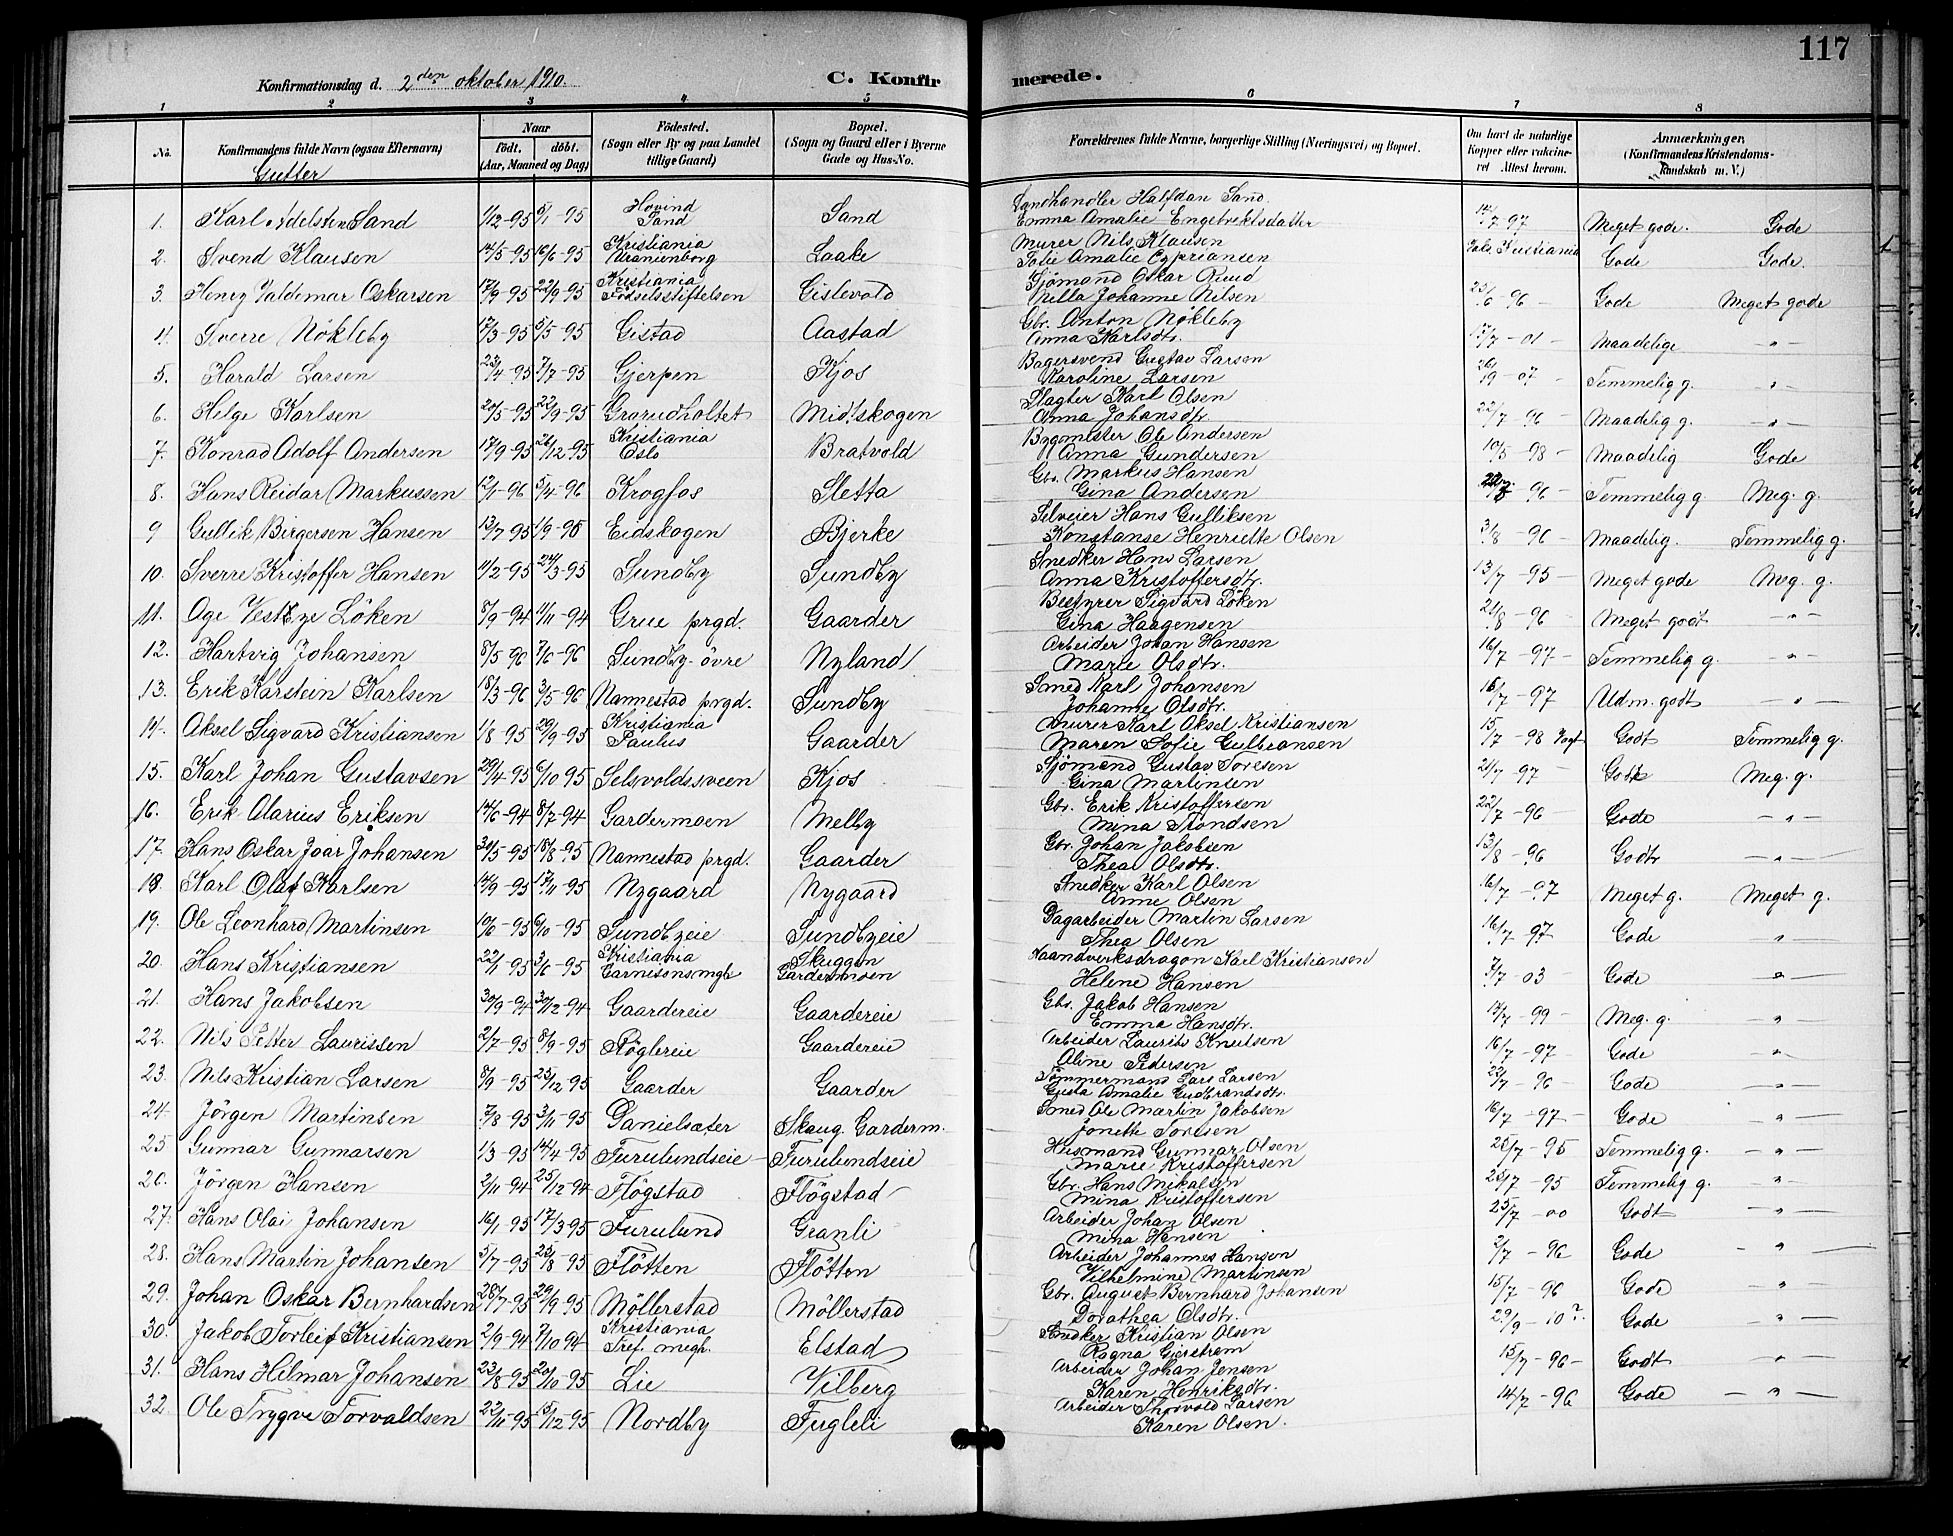 117
Konfirmationsdag d. 2den oktober 1910.
C. Konfirmerede.
1 2 3 4 5 6 7 8
No.
Konfirmandens fulde Navn (ogsaa Efternavn)
Gutter
Naar
födt. döbt.
(Aar, Maaned og Dag)
Födested.
(Sogn eller By og paa Landet
tillige Gaard)
Bopæl.
(Sogn og Gaard eller i Byerne
Gade og Hus-No.
Forældrenes fulde Navne, borgerlige Stilling (Næringsvei) og Bopæl.
Om havt de naturlige
Kopper eller vakcine-
ret Attest herom.
Anmærkninger,
(Konfirmandens Kristendoms-
Kundskab m. V.)
1. Karl Adelsten Sand 1/12-95 5/1-95 Hovind Sand Sand Landhandler Halfdan Sand. Emma Amalie Engebrektsdatter 14/7-97 Meget gode. Gode
2. Svend Klausen 14/5-95 16/6-95 Kristiania Uranienborg Laake Murer Nils Klausen Sofie Amalie Cypriansen Kristiania Gode Gode.
3. Henry Valdemar Oskarsen 17/9-95 22/9-95 Kristiania Födselsstiftelsen Gislevold Sjömand Oskar Ruud Nilla Johanne Nilsen 23/6-96 - Gode Meget gode
4. Sverre Nökleby 17/3-95 5/5-95 Gistad Aastad Gbr. Anton Nökleby Anna Karlsdtr. 17/7-01 - Maadelige -"-
5. Harald Larsen 23/4-95 7/7-95 Gjerpen Kjos Bagersvend Gustav Larsen Karoline Larsen -07 - Temmelig g. -"-
6. Helge Karlsen 2/5-95 22/9-95 Grorudholtet Midtskogen Slagter Karl Olsen Anna Johansdtr. 22/7-96 - Maadelig g. -"-
7. Konrad Adolf Andersen 17/9-95 26/12-95 Kristiania Oslo Bratvold Bygmester Ole Andersen Anna Gundersen 10/5-98 - Maadelig Gode
8. Hans Reidar Markussen 12/1-96 5/4-96 Krogfos Sletta Gbr. Markus Hansen Gina Andersen -96 - Temmelig g Meg. g.
9 Gullik Birgersen Hansen 13/7-95 1/9-95 Eidskogen Bjerke Selveier Hans Gulliksen Konstanse Henriette Olsen 3/8-96 - Maadelig. Temmelig g.
10. Sverre Kristoffer Hansen 11/2-95 24/3-95 Sundby Sundby Snedker Hans Larsen Anna Kristoffersdtr. 13/7-95 - Meget gode Meg. g.
11. Löken 8/9-94 11/11-94 Grue prgd. Gaarder Bestyrer Sigvard Löken Gina Haagensen 21/8-96 - Meget godt -"-
12. Hartvig Johansen 8/5-96 7/6-96 Sundby övre Nyland Arbeider Johan Hansen Marie Olsdtr. 16/7-97 - Temmelig g. -"-
13. Erik Karstein Karlsen 18/3-96 3/5-96 Nannestad prgd. Sundby Smed Karl Johansen Johanne Olsdtr. 16/7-97 Udm. godt -"-
14. Aksel Sigvard Kristiansen 1/8-95 29/9-95 Kristiania Paulus Gaarder Murer Karl Aksel Kristiansen Maren Sofie Gulbransen 15/7-98 Godt Temmelig g.
15. Karl Johan Gustavsen 29/4-95 6/10 95 Selsvoldssveen Kjos Sjömand Gustav Toresen Gina Martinsen 21/7-97 - Godt Meg. g.
16. Erik Alarius Eriksen 14/6-94 8/7-94 Gardermoen Melby Gbr. Erik Kristoffersen Mina Trondsen 22/7-96 Gode -"-
17. Hans Oskar Joar Johansen 30/5-95 18/8-95 Nannestad prgd. Gaarder Gbr. Johan Jakobsen Thea Olsdtr. 13/8-96 Godt -"-
18. Karl Olaf Karlsen 14/9-95 17/11-95 Nygaard Nygaard Snedker Karl Olsen Anne Olsen 16/7-97 Meget g. Meget g.
19. Ole Leonhard Martinsen 10/6-95 6/10-95 Sundbyeie Sundbyeie Dagarbeider Martin Larsen Thea Olsen 16/7-97 Gode -"-
20. Hans Kristiansen 22/1-95 3/6-95 Kristiania Garnisonsmgh Skuggen Gardermoen Haandverksdragon Karl Kristiansen Helene Hansen 7/7-03 Gode -"-
21. Hans Jakobsen 30/9-94 30/12-94 Gaardereie Gaardereie Gbr. Jakob Hansen Emma Hansdtr. 14/7-99 - Meg. g. -"-
22. Nils Petter Laurissen 2/7-95 8/9-95 Röglereie Gaardereie Arbeider Laurits Knutsen Oline Pedersen 16/7-97 - Gode -"-
23. Nils Kristian Larsen 8/9-95 25/12 95 Gaarder Gaarder Tömmermand Lars Larsen Gusta Amalie Gudbrandsdtr. 22/7-96 - Gode -"-
24. Jörgen Martinsen 7/8-95 3/11-95 Danielsæter Skaug. Garderm. Smed Ole Martin Jakobsen Jonette Toresen 16/7-97- Gode -"-
25 Gunnar Gunnarsen 1/3-95 14/4-95 Furulundseie Furulundseie Husmand Gunnar Olsen Marie Kristoffersen 25/7-95 Temmelig g. -"-
26. Jörgen Hansen 2/11-94 25/12-94 Flögstad Flögstad Gbr. Hans Mikalsen Mina Kristoffersen 25/7-95 Temmelig g. -"-
27. Hans Olai Johansen 16/1-95 17/3-95 Furulund Granli Arbeider Johan Olsen Mina Hansen 25/7-00 Godt -"-
28. Hans Martin Johansen 5/7-95 25/8-95 Flötten Flötten Arbeider Johannes Hansen Vilhelmine Martinsen 2/7-96 Gode -"-
29. Johan Oskar Bernhardsen 28/7-95 29/9-95 Möllerstad Möllerstad Gbr. August Bernhard Johansen Dorothea Olsdtr. 15/7-96 Gode -"-
30. Jakob Torleif Kristiansen 2/9-94 7/10 94 Kristiania Tref. megh. Elstad Snedker Kristian Olsen Ragna Gjerstrøm 29/9-10? Gode -"-
31. Hans Hilmar Johansen 23/8-95 20/10-95 Lie Vilberg Arbeider Johan Jensen Karen Henriksdtr. 15/7-96- Godt -"-
32. Ole Trygve Torvaldsen 22/11-95 15/12-95 Nordby Fugleli Arbeider Thorvald Larsen Karen Olsen. 14/7-96 Gode -"-